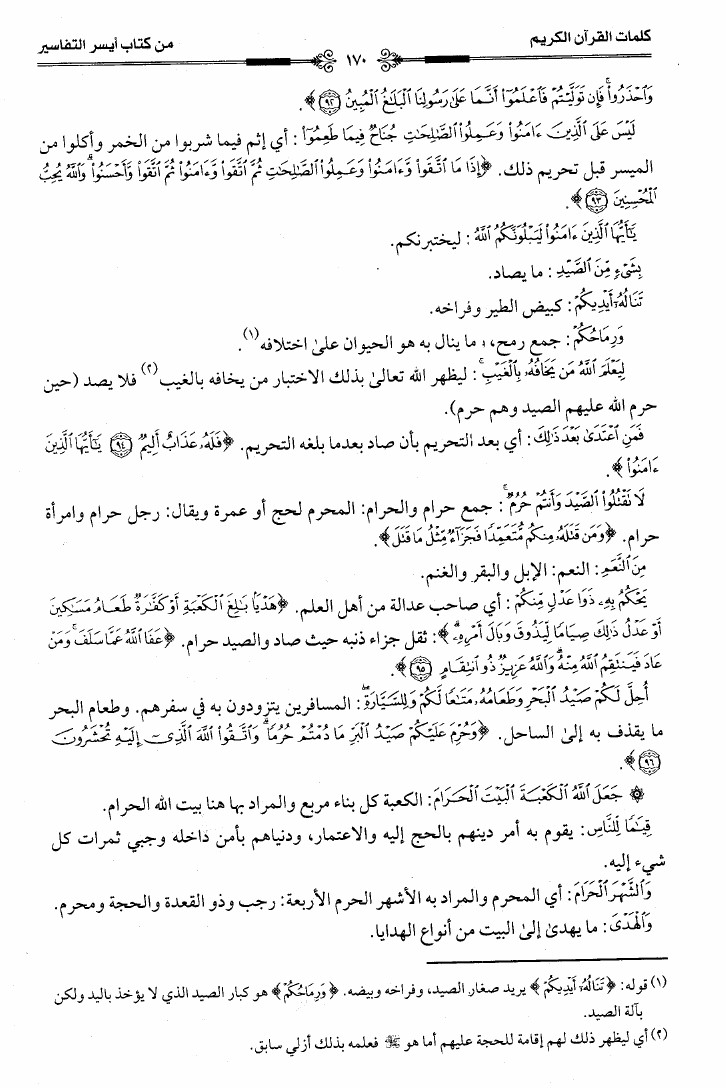 كلمات القرآن الكريم
١٧٠
من كتاب أيسر التفاسير
وَٱحۡذَرُواْۚ فَإِن تَوَلَّيۡتُمۡ فَٱعۡلَمُوٓاْ أَنَّمَا عَلَىٰ رَسُولِنَا ٱلۡبَلَٰغُ ٱلۡمُبِينُ ﴿٩٢﴾.
لَيۡسَ عَلَى ٱلَّذِينَ ءَامَنُواْ وَعَمِلُواْ ٱلصَّٰلِحَٰتِ جُنَاحٞ فِيمَا طَعِمُوٓاْ: أي إثم فيما شربوا من الخمر وأكلوا من
الميسر قبل تحريم ذلك. ﴿إِذَا مَا ٱتَّقَواْ وَّءَامَنُواْ وَعَمِلُواْ ٱلصَّٰلِحَٰتِ ثُمَّ ٱتَّقَواْ وَّءَامَنُواْ ثُمَّ ٱتَّقَواْ وَّأَحۡسَنُواْۚ وَٱللَّهُ يُحِبُّ
ٱلۡمُحۡسِنِينَ ٩٣﴾.
يَٰٓأَيُّهَا ٱلَّذِينَ ءَامَنُواْ لَيَبۡلُوَنَّكُمُ ٱللَّهُ: ليختبرنكم.
بِشَيۡءٖ مِّنَ ٱلصَّيۡدِ: ما يصاد.
تَنَالُهُۥٓ أَيۡدِيكُمۡ: كبيض الطير وفراخه.
وَرِمَاحُكُمۡ: جمع رمح، ما ينال به هو الحيوان على اختلافه(١).
لِيَعۡلَمَ ٱللَّهُ مَن يَخَافُهُۥ بِٱلۡغَيۡبِۚ: ليظهر الله تعالى بذلك الاختبار من يخافه بالغيب(٢) فلا يصد (حين
حرم الله عليهم الصيد وهم حرم).
فَمَنِ ٱعۡتَدَىٰ بَعۡدَ ذَٰلِكَ: أي بعد التحريم بأن صاد بعدما بلغه التحريم. ﴿فَلَهُۥ عَذَابٌ أَلِيمٞ ٩٤ يَٰٓأَيُّهَا ٱلَّذِينَ
ءَامَنُواْ﴾.
لَا تَقۡتُلُواْ ٱلصَّيۡدَ وَأَنتُمۡ حُرُمٞۚ: جمع حرام والحرام: المحرم لحج أو عمرة ويقال: رجل حرام وامرأة
حرام. ﴿وَمَن قَتَلَهُۥ مِنكُم مُّتَعَمِّدٗا فَجَزَآءٞ مِّثۡلُ مَا قَتَلَ﴾.
مِنَ ٱلنَّعَمِ: النعم: الإبل والبقر والغنم.
يَحۡكُمُ بِهِۦ ذَوَا عَدۡلٖ مِّنكُمۡ: أي صاحب عدالة من أهل العلم. ﴿هَدۡيَۢا بَٰلِغَ ٱلۡكَعۡبَةِ أَوۡ كَفَّٰرَةٞ طَعَامُ مَسَٰكِينَ
أَوۡ عَدۡلُ ذَٰلِكَ صِيَامٗا لِّيَذُوقَ وَبَالَ أَمۡرِهِۦۗ﴾: ثقل جزاء ذنبه حيث صاد والصيد حرام. ﴿عَفَا ٱللَّهُ عَمَّا سَلَفَۚ وَمَنۡ
عَادَ فَيَنتَقِمُ ٱللَّهُ مِنۡهُۚ وَٱللَّهُ عَزِيزٞ ذُو ٱنتِقَامٍ ٩٥﴾.
أُحِلَّ لَكُمۡ صَيۡدُ ٱلۡبَحۡرِ وَطَعَامُهُۥ مَتَٰعٗا لَّكُمۡ وَلِلسَّيَّارَةِۖ: المسافرين يتزودون به في سفرهم. وطعام البحر
ما يقذف به إلى الساحل. ﴿وَحُرِّمَ عَلَيۡكُمۡ صَيۡدُ ٱلۡبَرِّ مَا دُمۡتُمۡ حُرُمٗاۗ وَٱتَّقُواْ ٱللَّهَ ٱلَّذِيٓ إِلَيۡهِ تُحۡشَرُونَ
٩٦﴾.
۞ جَعَلَ ٱللَّهُ ٱلۡكَعۡبَةَ ٱلۡبَيۡتَ ٱلۡحَرَامَ: الكعبة كل بناء مربع والمراد بها هنا بيت الله الحرام.
قِيَٰمٗا لِّلنَّاسِ: يقوم به أمر دينهم بالحج إليه والاعتمار، ودنياهم بأمن داخله وجبي ثمرات كل
شيء إليه.
وَٱلشَّهۡرَ ٱلۡحَرَامَ: أي المحرم والمراد به الأشهر الحرم الأربعة: رجب وذو القعدة والحجة ومحرم.
وَٱلۡهَدۡيَ: ما يهدى إلى البيت من أنواع الهدايا.
(١) قوله: ﴿تَنَالُهُۥٓ أَيۡدِيكُمۡ﴾ يريد صغار الصيد، وفراخه وبيضه. ﴿وَرِمَاحُكُمۡ﴾ هو كبار الصيد الذي لا يؤخذ باليد ولكن
بآلة الصيد.
(٢) أي ليظهر ذلك لهم إقامة للحجة عليهم أما هو ﷻ فعلمه بذلك أزلي سابق.